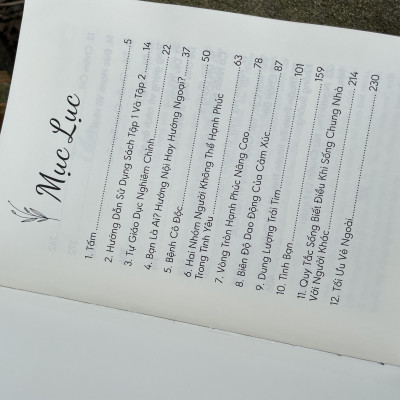 Mục Lục
1. Tầm.....5
2. Hướng Dẫn Sử Dụng Sách Tập 1 Và Tập 2.....14
3. Tự Giáo Dục Nghiêm Chỉnh.....22
4. Bạn Là Ai? Hướng Nội Hay Hướng Ngoại?.....37
5. Bệnh Cô Độc.....50
6. Hai Nhóm Người Không Thể Hạnh Phúc
Trong Tình Yêu.....63
7. Vòng Tròn Hạnh Phúc Nâng Cao.....78
8. Biên Độ Dao Động Của Cảm Xúc.....87
9. Dung Lượng Trái Tim.....101
10. Tình Bạn.....159
11. Quy Tắc Sống Biết Điều Khi Sống Chung Nhà
Với Người Khác.....214
12. Tối Ưu Vẻ Ngoài.....230